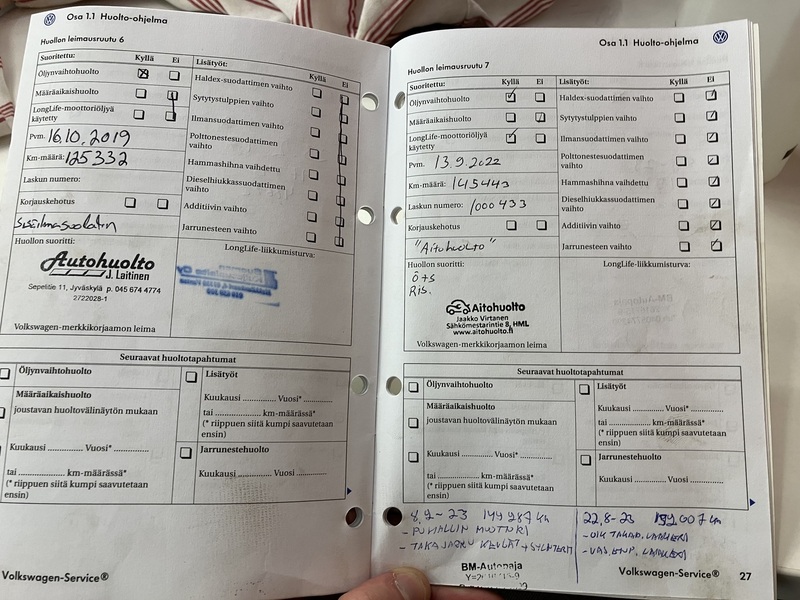 Osa 1.1 Huolto-ohjelma
Huollon leimausruutu 6
Suoritettu: Kyllä Ei
Öljynvaihtohuolto
Määräaikaishuolto
LongLife-moottoriöljyä
käytetty
Pvm. 16.10.2019
Km-määrä: 125332
Laskun numero:
Korjauskehotus
Huollon suoritti:
Autohuolto
J. Laitinen
Sepelitie 11, Jyväskylä p. 045 674 4774
2722028-1
Volkswagen-merkkikorjaamon leima
Lisätyöt: Kyllä Ei
Haldex-suodattimen vaihto
Sytytystulppien vaihto
Ilmansuodattimen vaihto
Polttonestesuodattimen
vaihto
Hammashihna vaihdettu
Dieselhiukkassuodattimen
vaihto
Additiivin vaihto
Jarrunesteen vaihto
LongLife-liikkumisturva:
Seuraavat huoltotapahtumat
Öljynvaihtohuolto
Määräaikaishuolto
joustavan huoltovälinäytön mukaan
Kuukausi .............. Vuosi* ..............
tai ..................... km-määrässä*
(* riippuen siitä kumpi saavutetaan
ensin)
Lisätyöt
Kuukausi .............. Vuosi* ..............
tai ..................... km-määrässä*
(* riippuen siitä kumpi saavutetaan
ensin)
Jarrunestehuolto
Kuukausi .............. Vuosi ..............
Volkswagen-Service®
Osa 1.1 Huolto-ohjelma
Huollon leimausruutu 7
Suoritettu: Kyllä Ei
Öljynvaihtohuolto
Määräaikaishuolto
LongLife-moottoriöljyä
käytetty
Pvm. 13.9.2022
Km-määrä: 145443
Laskun numero: 1000433
Korjauskehotus
"Aitohuolto"
Huollon suoritti:
Ö+S
Ris.
Aitohuolto
Jaakko Virtanen
Sähkömestarintie 8, HML
www.aitohuolto.fi
Volkswagen-merkkikorjaamon leima
Lisätyöt: Kyllä Ei
Haldex-suodattimen vaihto
Sytytystulppien vaihto
Ilmansuodattimen vaihto
Polttonestesuodattimen
vaihto
Hammashihna vaihdettu
Dieselhiukkassuodattimen
vaihto
Additiivin vaihto
Jarrunesteen vaihto
LongLife-liikkumisturva:
Seuraavat huoltotapahtumat
Öljynvaihtohuolto
Määräaikaishuolto
joustavan huoltovälinäytön mukaan
Kuukausi .............. Vuosi* ..............
tai ..................... km-määrässä*
(* riippuen siitä kumpi saavutetaan
ensin)
Lisätyöt
Kuukausi .............. Vuosi* ..............
tai ..................... km-määrässä*
(* riippuen siitä kumpi saavutetaan
ensin)
Jarrunestehuolto
Kuukausi .............. Vuosi ..............
- PUHALLIN MOOTTORI
BM-Autopaja
22,8-23
Volkswagen-Service® 27